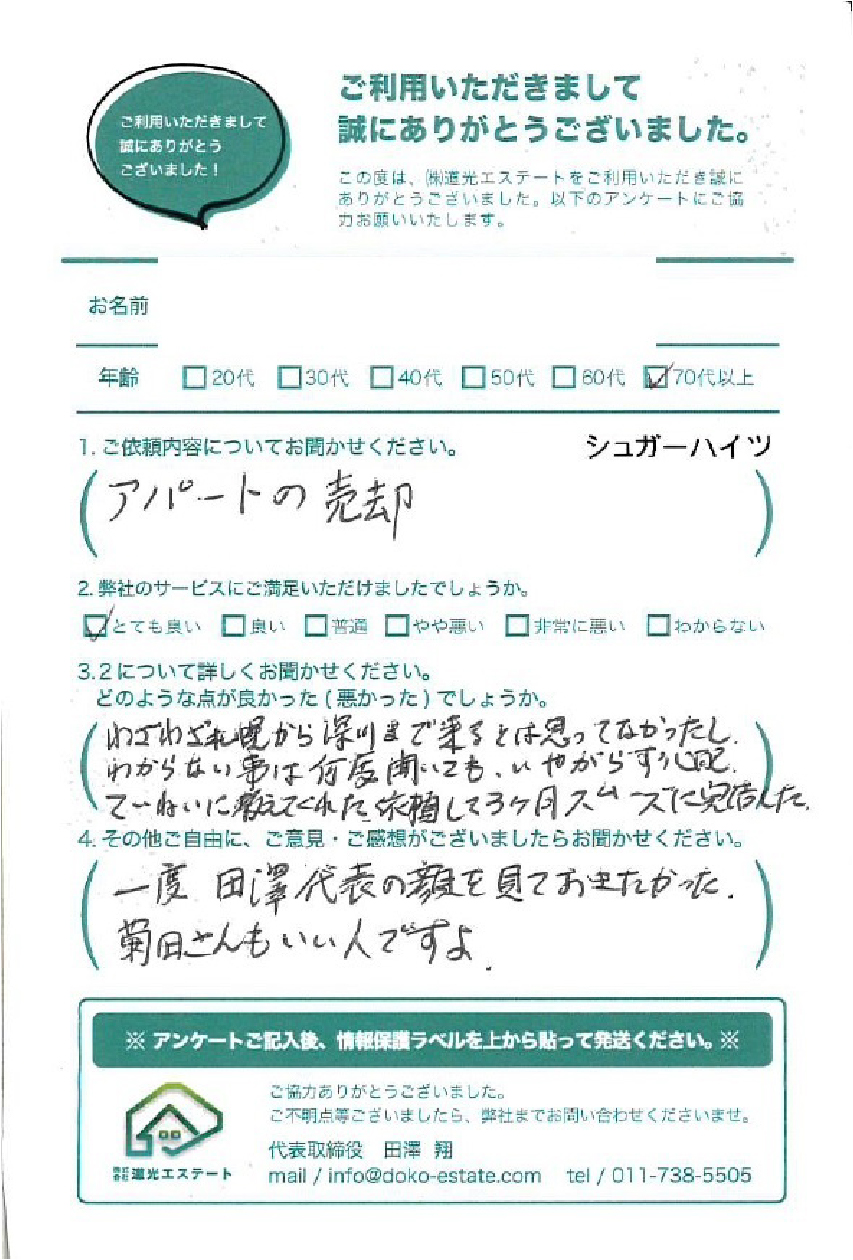 ご利用いただきまして
誠にありがとう
ございました！
ご利用いただきまして
誠にありがとうございました。
この度は、㈱道光エステートをご利用いただき誠に
ありがとうございました。以下のアンケートにご協
力お願いいたします。
お名前
年齢 20代 30代 40代 50代 60代 70代以上
1. ご依頼内容についてお聞かせください。 シュガーハイツ
アパートの売却
2. 弊社のサービスにご満足いただけましたでしょうか。
とても良い 良い 普通 やや悪い 非常に悪い わからない
3.2について詳しくお聞かせください。
どのような点が良かった(悪かった)でしょうか。
わざわざ札幌から深川まで来るとは思ってなかったし.
わからない事は何度聞いても、いやがらず
ていねいに教えてくれた.依頼して3ヶ月スムーズに完結した.
4. その他ご自由に、ご意見・ご感想がございましたらお聞かせください。
一度 田澤代表の顔を見ておきたかった.
菊田さんもいい人ですよ.
※ アンケートご記入後、情報保護ラベルを上から貼って発送ください。※
ご協力ありがとうございました。
ご不明点等ございましたら、弊社までお問い合わせくださいませ。
代表取締役 田澤 翔
株式会社道光エステート mail / info@doko-estate.com tel / 011-738-5505